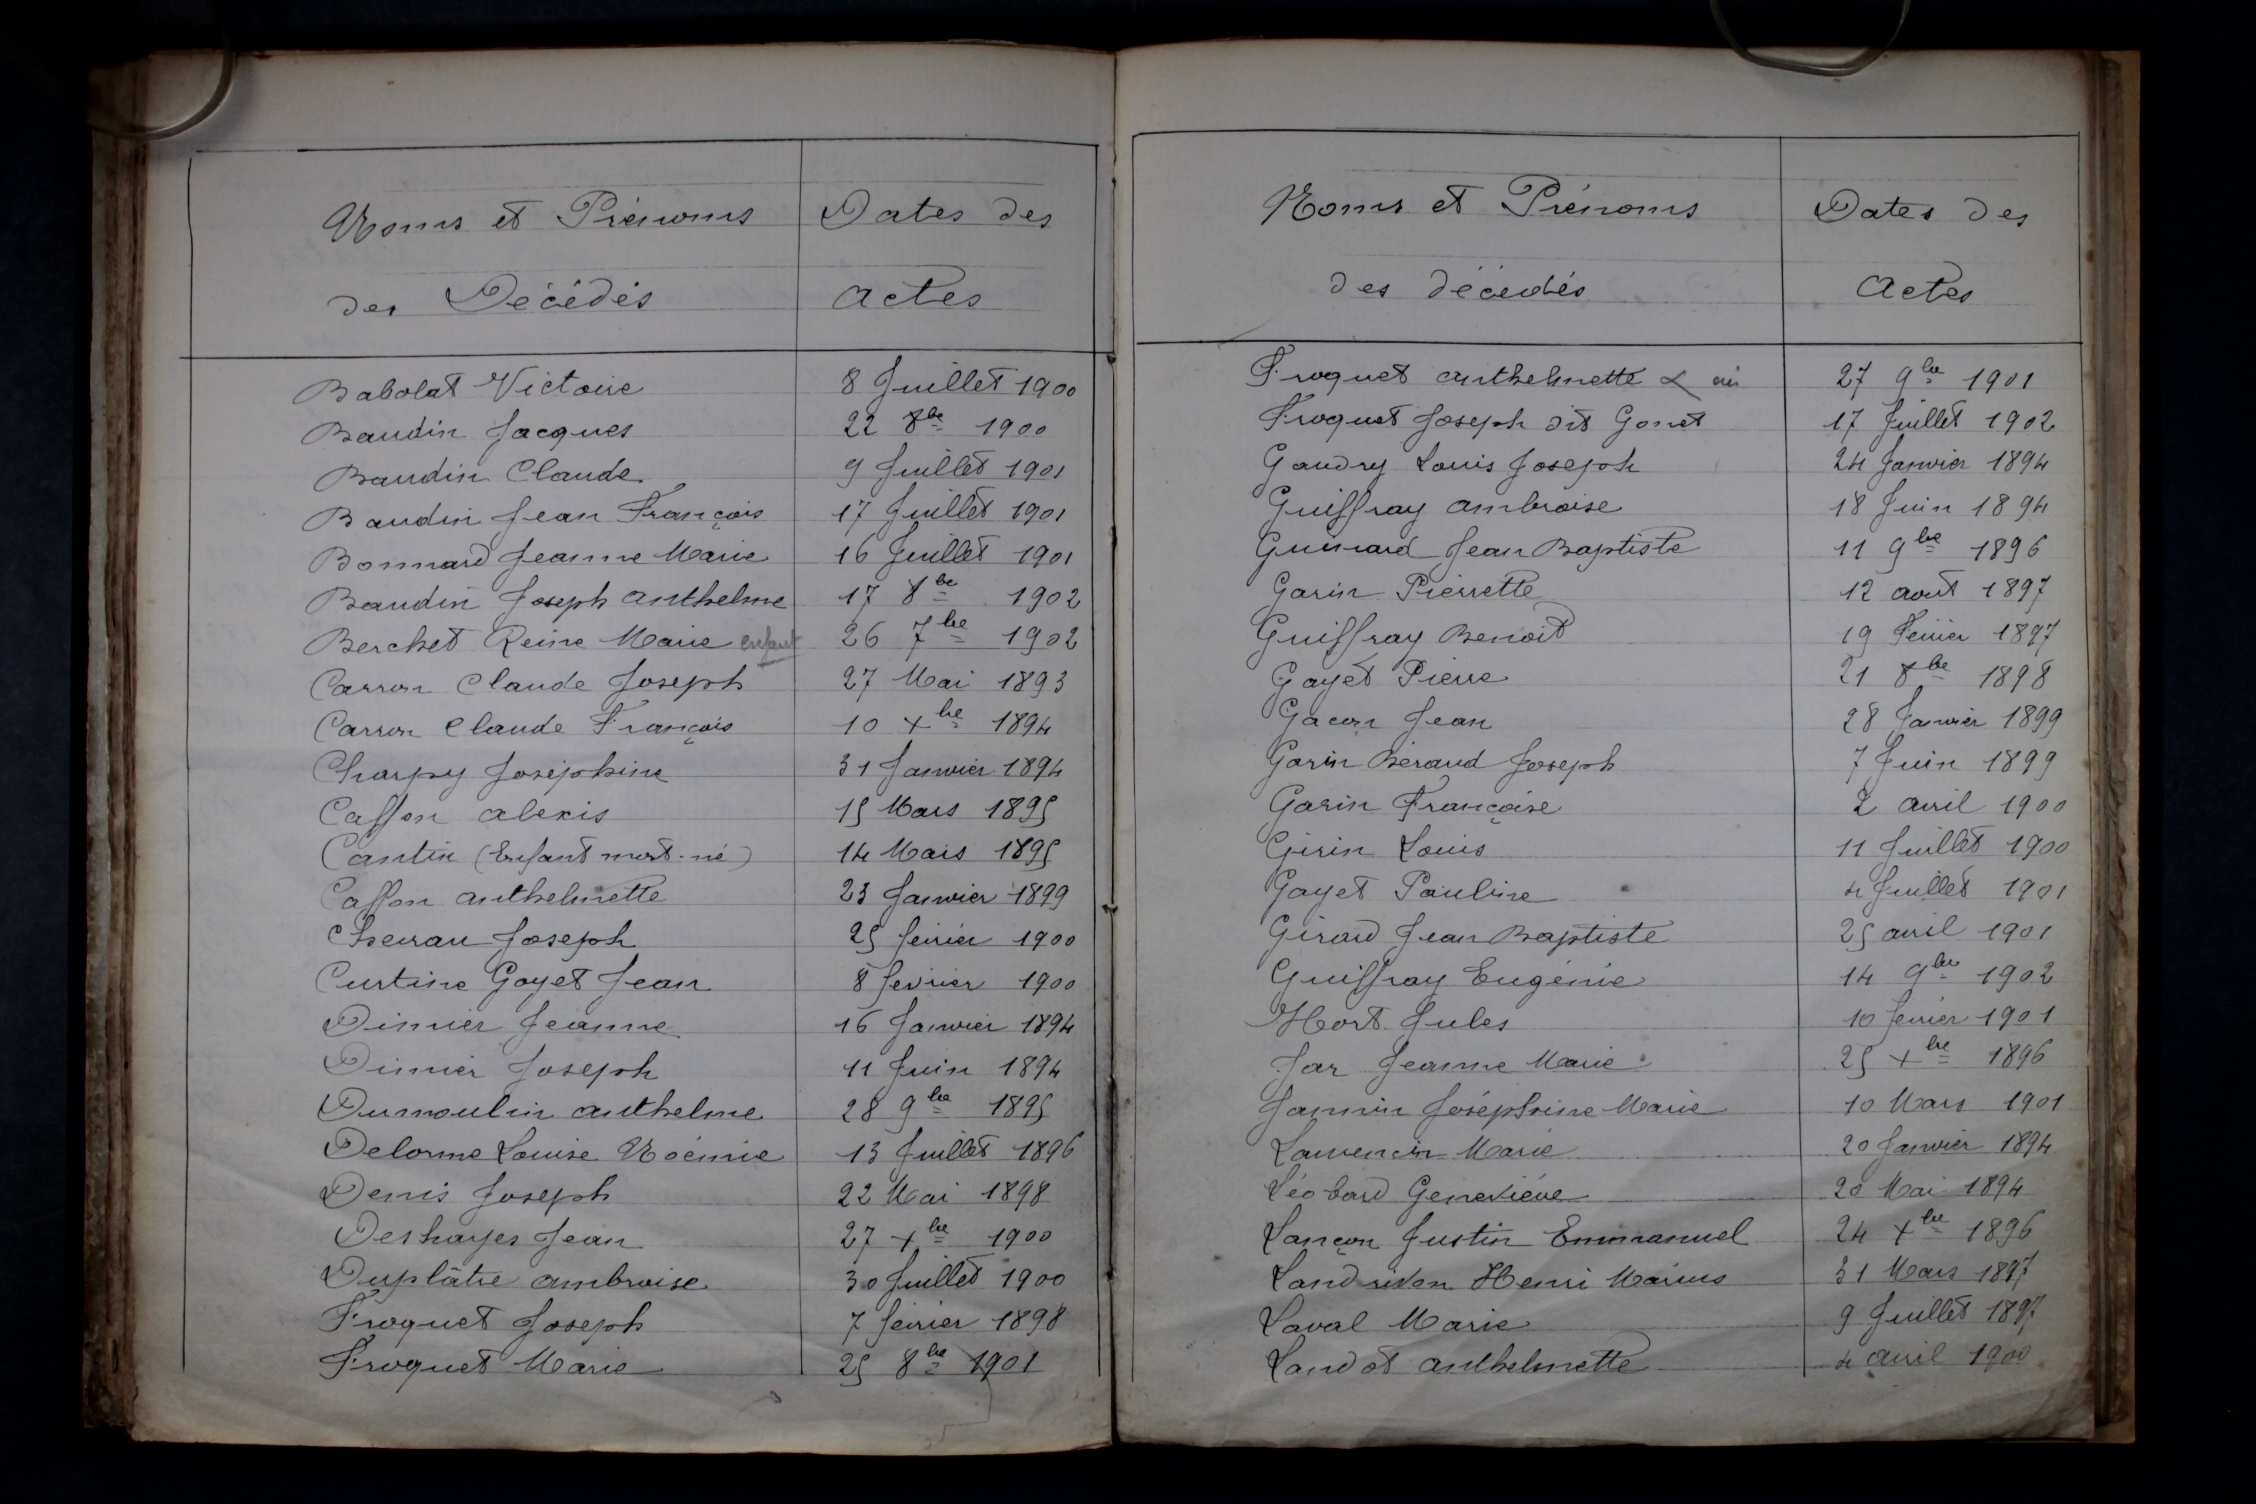 Noms et Prénoms Dates des
des Décédés actes
Babolat Victoire 8 Juillet 1900
Baudin Jacques 22 8bre 1900
Baudin Claude 9 Juillet 1901
Baudin Jean François 17 Juillet 1901
Bonnard Jeanne Marie 16 Juillet 1901
Baudin Joseph anthelme 17 8bre 1902
Berchet Reine Marie enfant 26 7bre 1902
Carron Claude Joseph 27 Mai 1893
Carron Claude François 10 Xbre 1894
Charpy Joséphine 31 Janvier 1894
Caffon alexis 15 Mars 1895
Cantin (Enfant mort-né) 14 Mars 1895
Caffon anthelmette 23 Janvier 1899
Joseph 25 février 1900
Curtine Goyet Jean 8 fevrier 1900
Dimier Jeanne 16 Janvier 1894
Dimier Joseph 11 Juin 1894
Dumoulin anthelme 28 9bre 1895
Delorme Louise Noémie 13 Juillet 1896
Denis Joseph 22 Mai 1898
Deshayes Jean 27 Xbre 1900
Duplâtre ambroise 30 Juillet 1900
Froquet Joseph 7 février 1898
Froquet Marie 25 8bre 1901
Noms et Prénoms Dates des
des décédés Actes
Froquet anthelmette 27 9bre 1901
Froquet Joseph dit Gonet 17 Juillet 1902
Gaudry Louis Joseph 24 Janvier 1894
Guiffray ambroise 18 Juin 1894
Guinard Jean Baptiste 11 9bre 1896
Garin Pierrette 12 aout 1897
Guiffray Benoit 19 Février 1897
Gayet Pierre 21 8bre 1898
Gacon Jean 28 Janvier 1899
Garin Béraud Joseph 7 Juin 1899
Garin Françoise 2 avril 1900
Girin Louis 11 Juillet 1900
Gayet Pauline 4 Juillet 1901
Girard Jean Baptiste 25 avril 1901
Guiffray Eugénie 14 9bre 1902
Hort Jules 10 février 1901
Jar Jeanne Marie 25 Xbre 1896
Jannin Joséphine Marie 10 Mars 1901
Laurencin Marie 20 Janvier 1894
Léobard Geneviéve 20 Mai 1894
Lançon Justin Emmanuel 24 Xbre 1896
Landrivon Henri Marius 31 Mars 1897
Laval Marie 9 Juillet 1897
Landot anthelmette 4 avril 1900